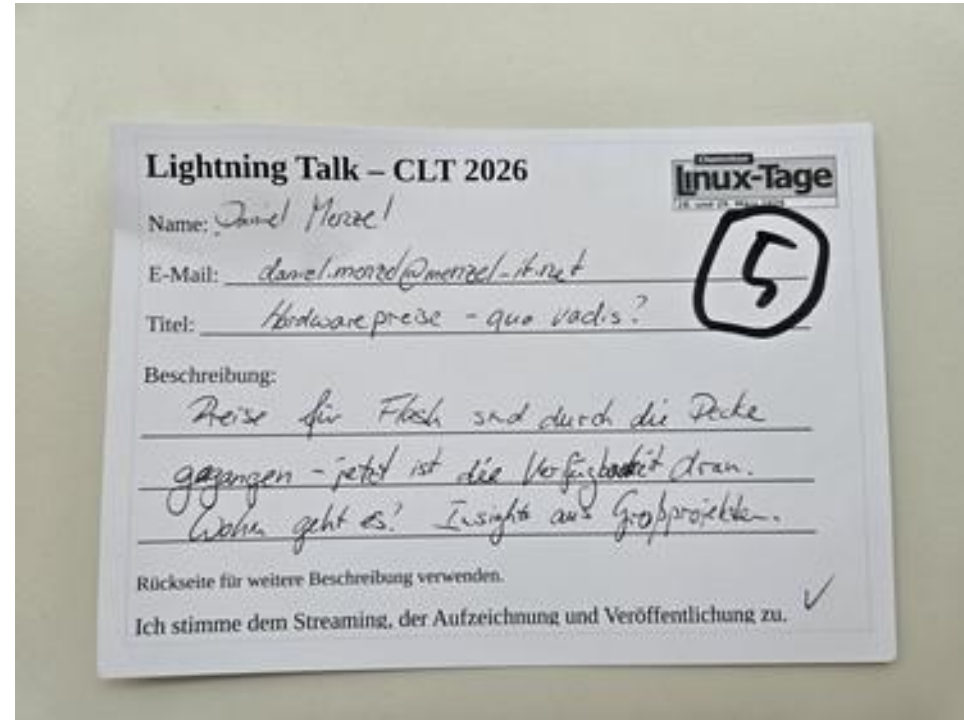 Lightning Talk – CLT 2026
Chemnitzer
Linux-Tage
28. und 29. März 2026
Name: Daniel Menzel
5
E-Mail: daniel.menzel@menzel-it.net
Titel: Hardwarepreise - quo vadis?
Beschreibung:
Preise für Flash sind durch die Decke
gegangen - jetzt ist die Verfügbarkeit dran.
Wohin geht es? Insights aus Großprojekten.
Rückseite für weitere Beschreibung verwenden.
Ich stimme dem Streaming, der Aufzeichnung und Veröffentlichung zu. ✓